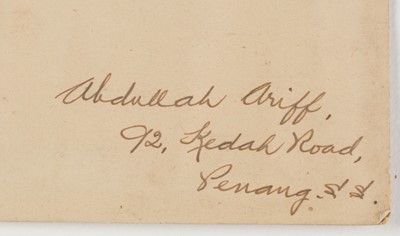 Abdullah Ariff,
92, Kedah Road,
Penang. S. S.